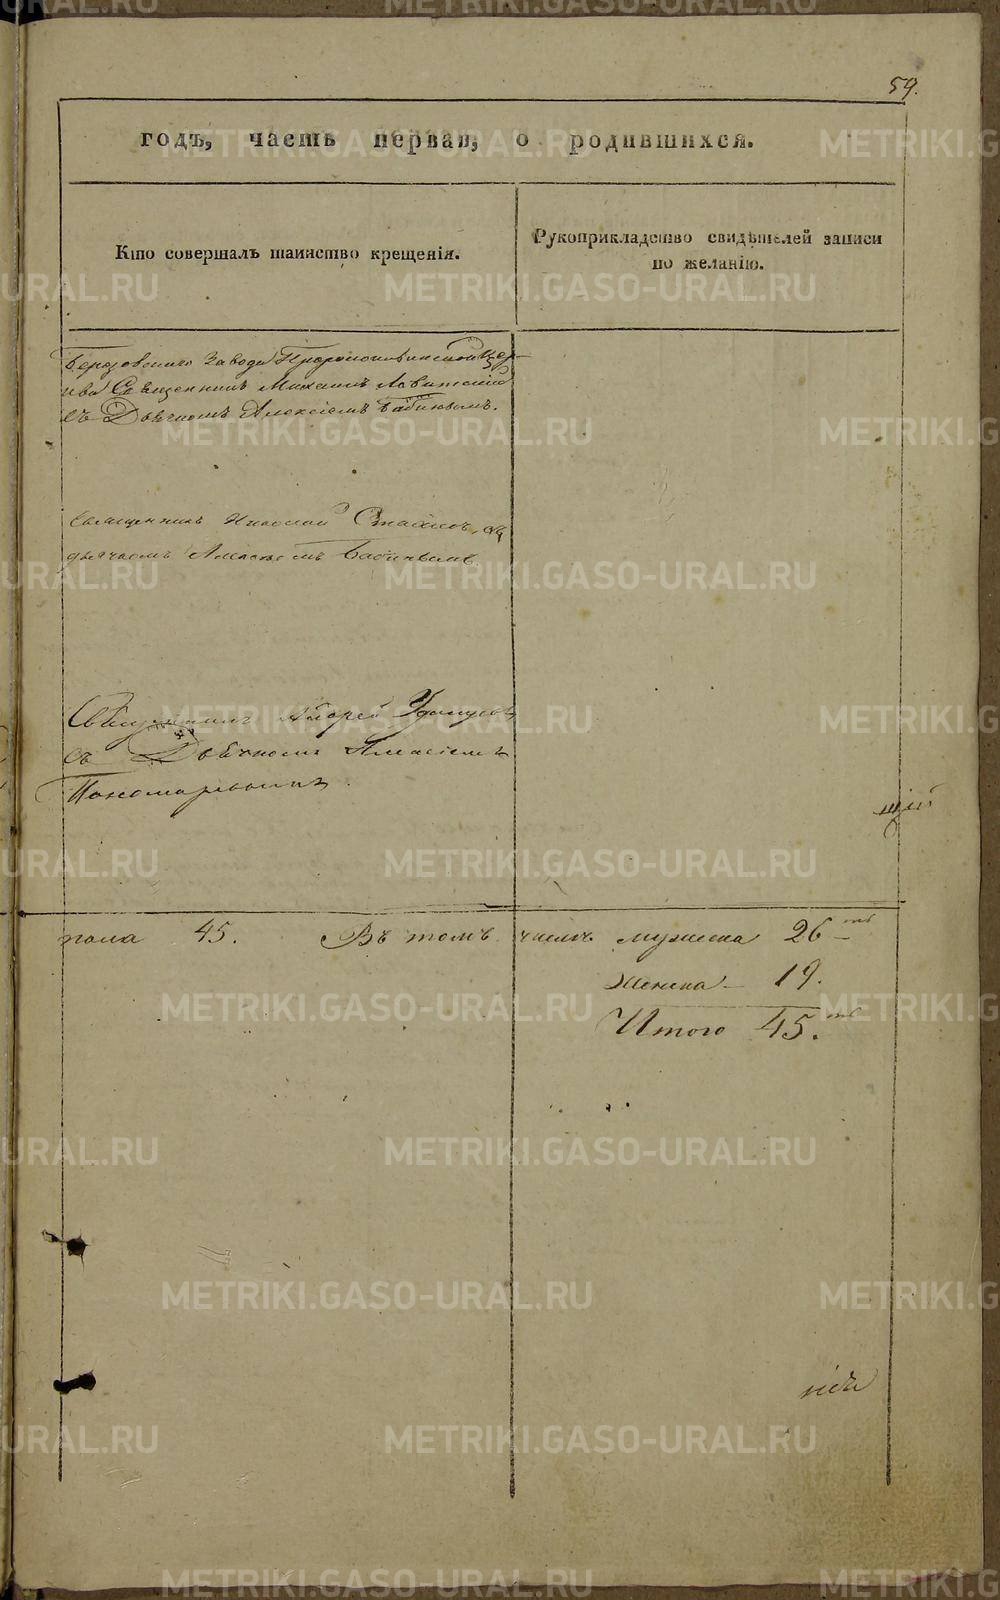 59.
годъ, часть первая, о родившихся.
Кто совершалъ таинство крещенія.
Рукоприкладство свидѣтелей записи
по желанію.
Березовскаго Завода Пророкоильинской Цер-
кви Священникъ Михаилъ Левитскій
съ Дьячкомъ Алексіемъ Бабиновымъ.
Священникъ Николай
дьячкомъ Алексѣемъ Бабиновымъ.
Священникъ Андрей
съ Дьячкомъ Алексіемъ
Пономаревымъ.
щій
пола 45. Въ томъ числѣ мужеска 26-ть
Женска – 19.
Итого 45.ть
METRIKI.GASO-URAL.RU